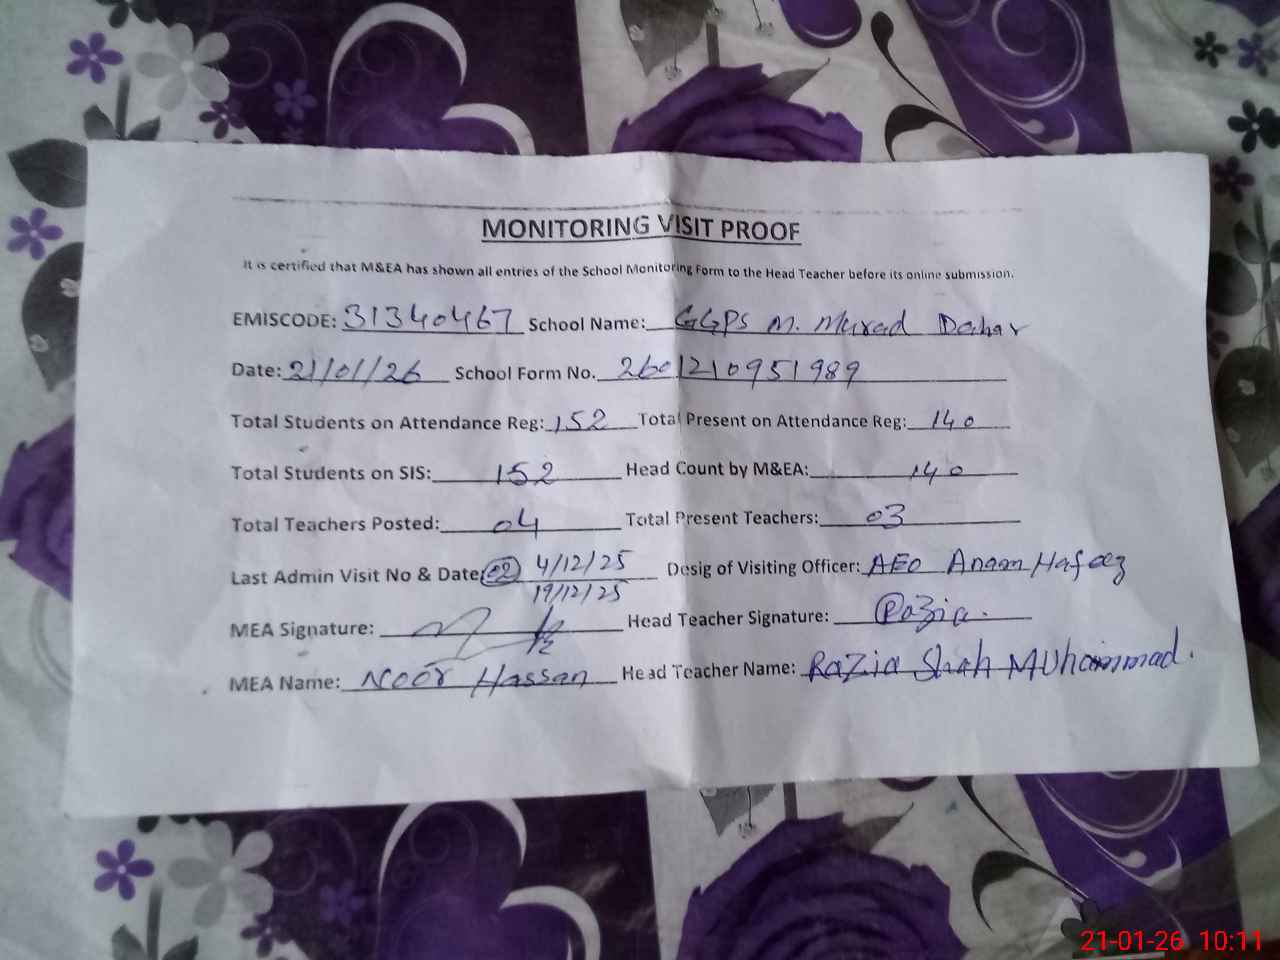 MONITORING VISIT PROOF
It is certified that M&EA has shown all entries of the School Monitoring Form to the Head Teacher before its online submission.
EMISCODE: 31340467 School Name: GGPS M. Murad Dahar
Date: 21/01/26 School Form No. 2601210951989
Total Students on Attendance Reg: 152 Total Present on Attendance Reg: 140
Total Students on SIS: 152 Head Count by M&EA: 140
Total Teachers Posted: 04 Total Present Teachers: 03
Last Admin Visit No & Date: 02 4/12/25 Desig of Visiting Officer: AEO Anam Hafeez
19/12/25
MEA Signature: Head Teacher Signature: Razia.
MEA Name: Noor Hassan Head Teacher Name: Razia Shah Muhammad.
21-01-26 10:11